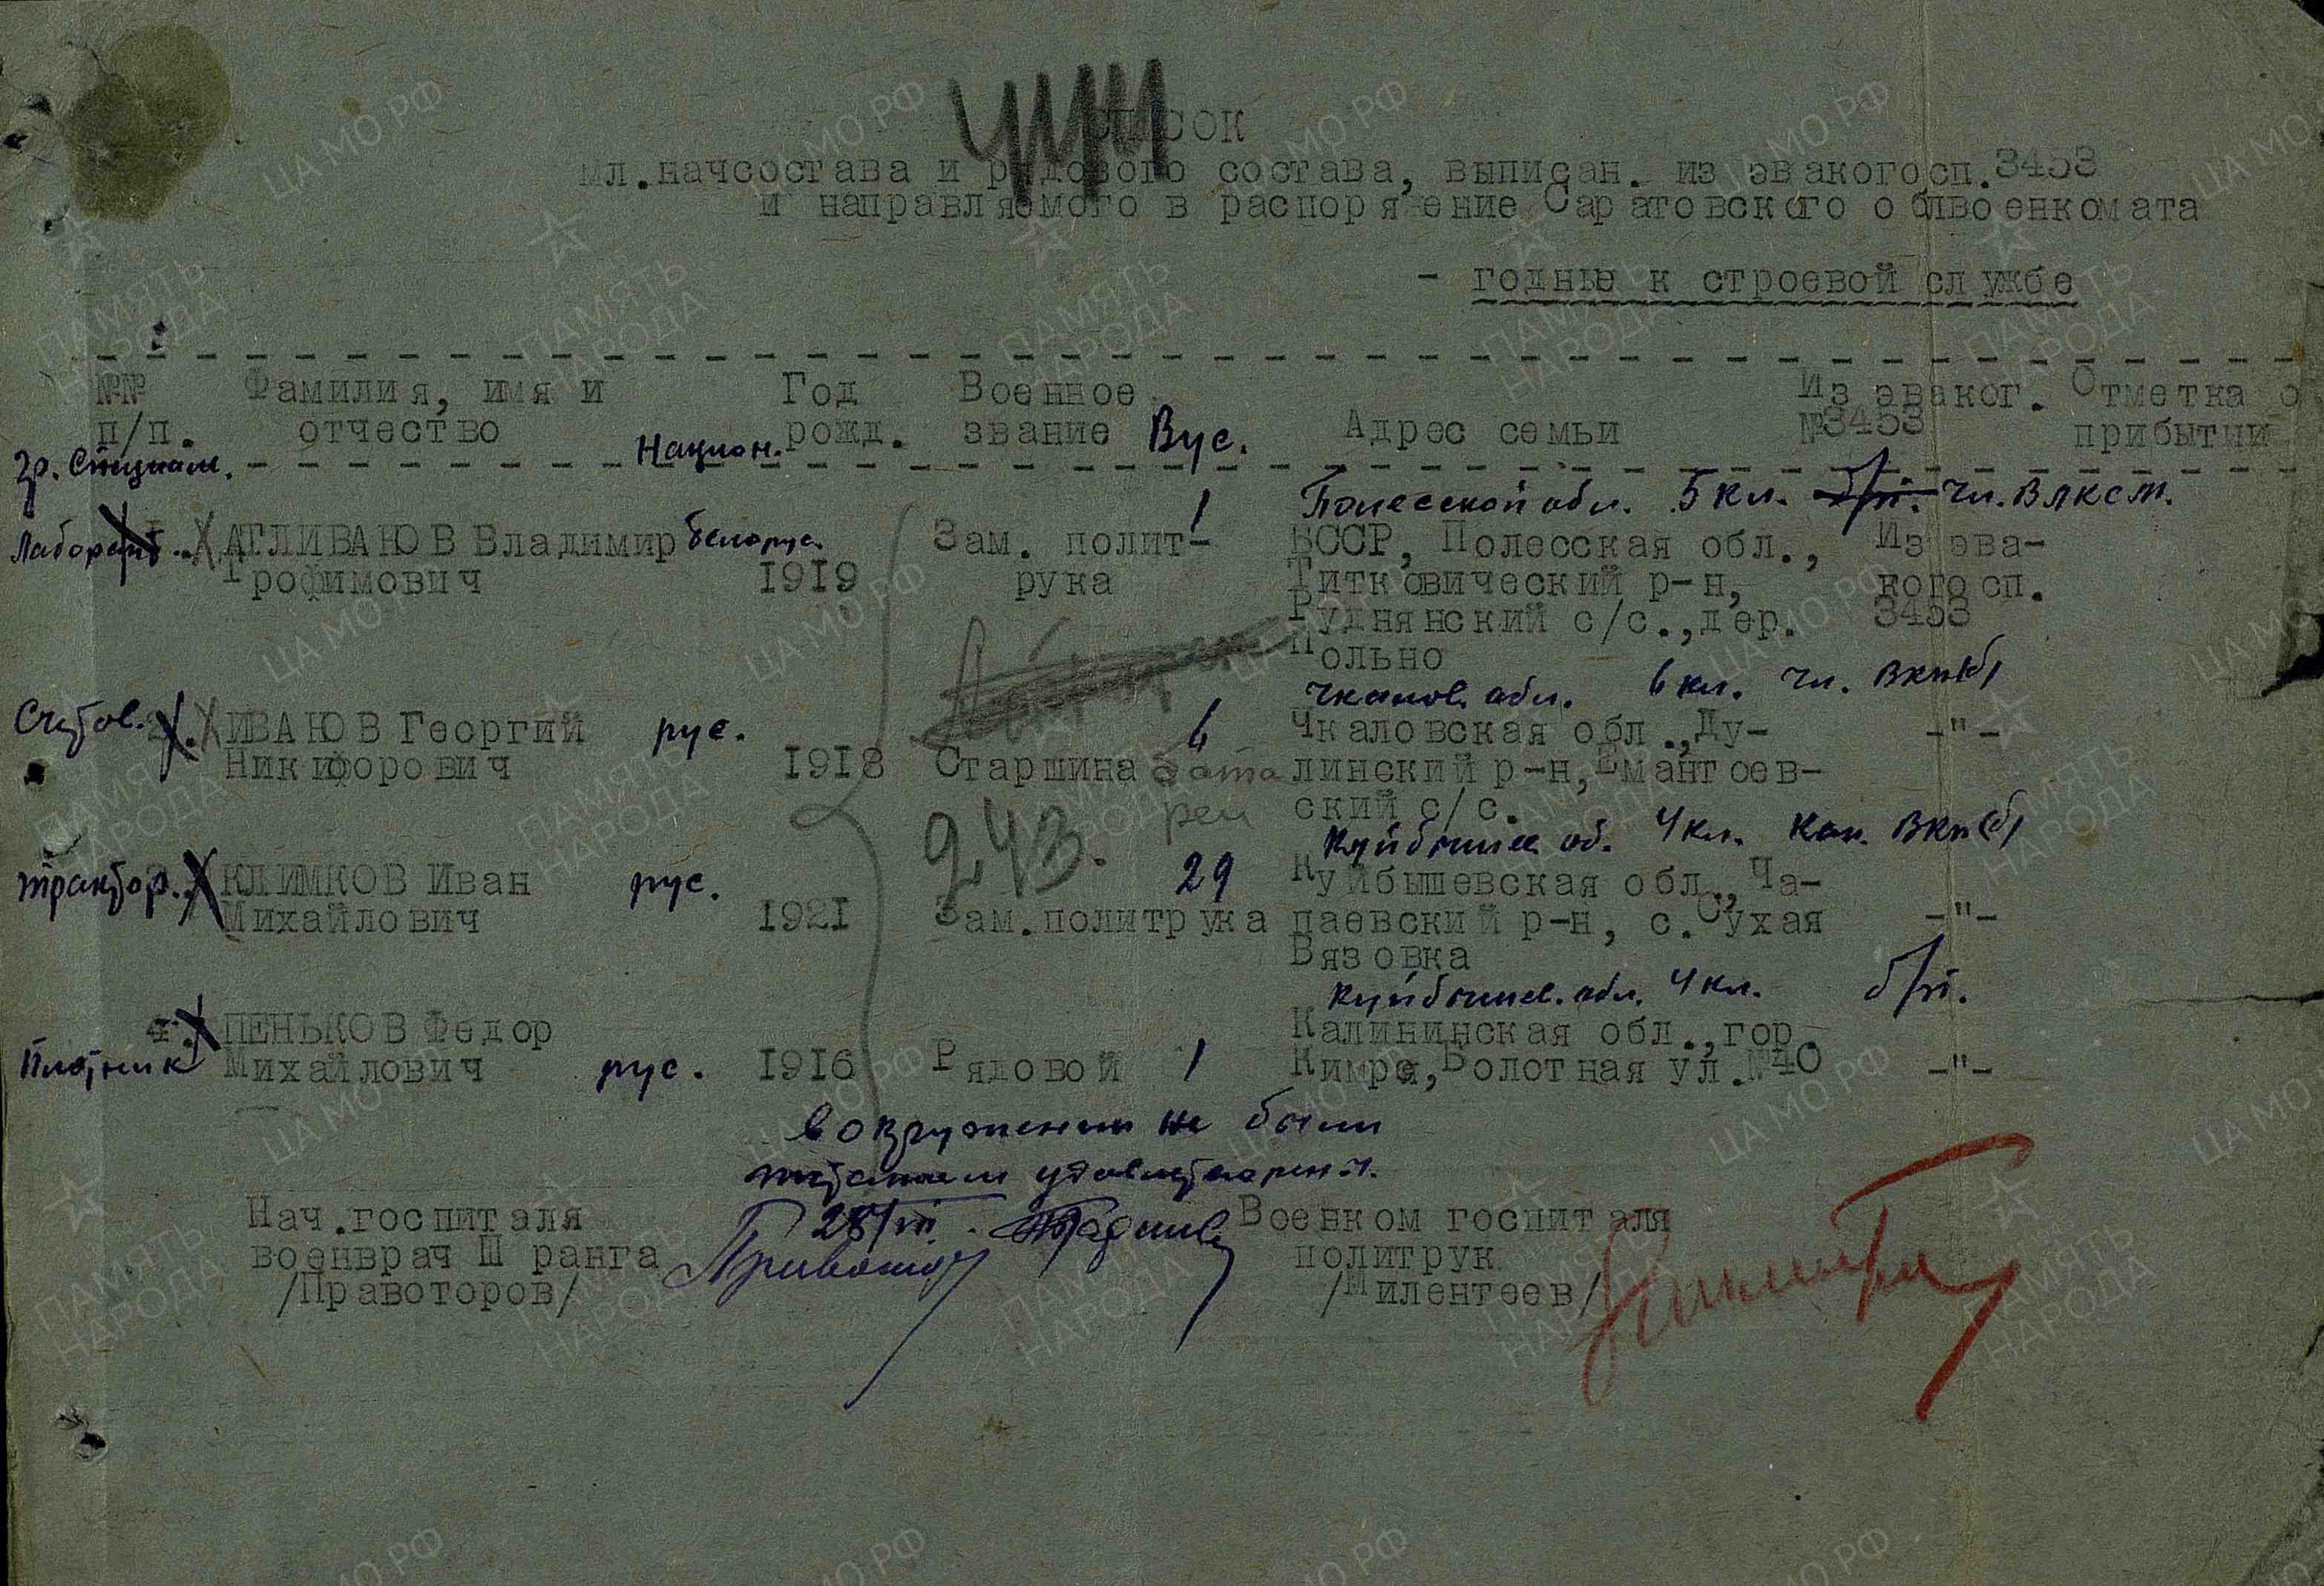 СПИСОК
мл.начсостава и рядового состава, выписан. из эвакогосп.3453
и направляемого в распоряжение Саратовского облвоенкомата
- годные к строевой службе
№№ Фамилия, имя и Год Военное Из эваког. Отметка о
п/п. отчество Национ. рожд. звание Вус. Адрес семьи №3453 прибытии
гр. Специальн.
Полесской обл. 5 кл. б/п. чл. ВЛКСМ.
Лаборант АТЛИВАЮВ Владимир белорус. Зам. полит- 1 БССР, Полесская обл., Из эва-
Трофимович 1919 рука Титковический р-н, когосп.
Руднянский с/с.,дер. 3453
Польно
Чкалов. обл. 6 кл. чл. ВКП(б)
Счетов. 2. ИВАЮВ Георгий рус. 6 Чкаловская обл.,Ду- -"-
Никифорович 1918 Старшина бата линский р-н,Емангоев-
реи ский с/с.
243.
Куйбышев. об. 4 кл. Кан. ВКП(б)
трактор. КЛИМКОВ Иван рус. 29 Куйбышевская обл., Ча-
Михайлович 1921 Зам.политрука паевский р-н, с.Сухая -"-
Вязовка
Куйбышев. обл. 4 кл. б/п.
4. ПЕНЬКОВ Федор Калининская обл.,гор.
Плотник Михайлович рус. 1916 Рядовой 1 Кимры,Болотная ул.№40 -"-
в окружении не были
удовлетворен.
Нач.госпиталя 28/III. Военком госпиталя
военврач III ранга политрук
/Правоторов/ /Милентеев/
ЦА МО РФ
ПАМЯТЬ
НАРОДА